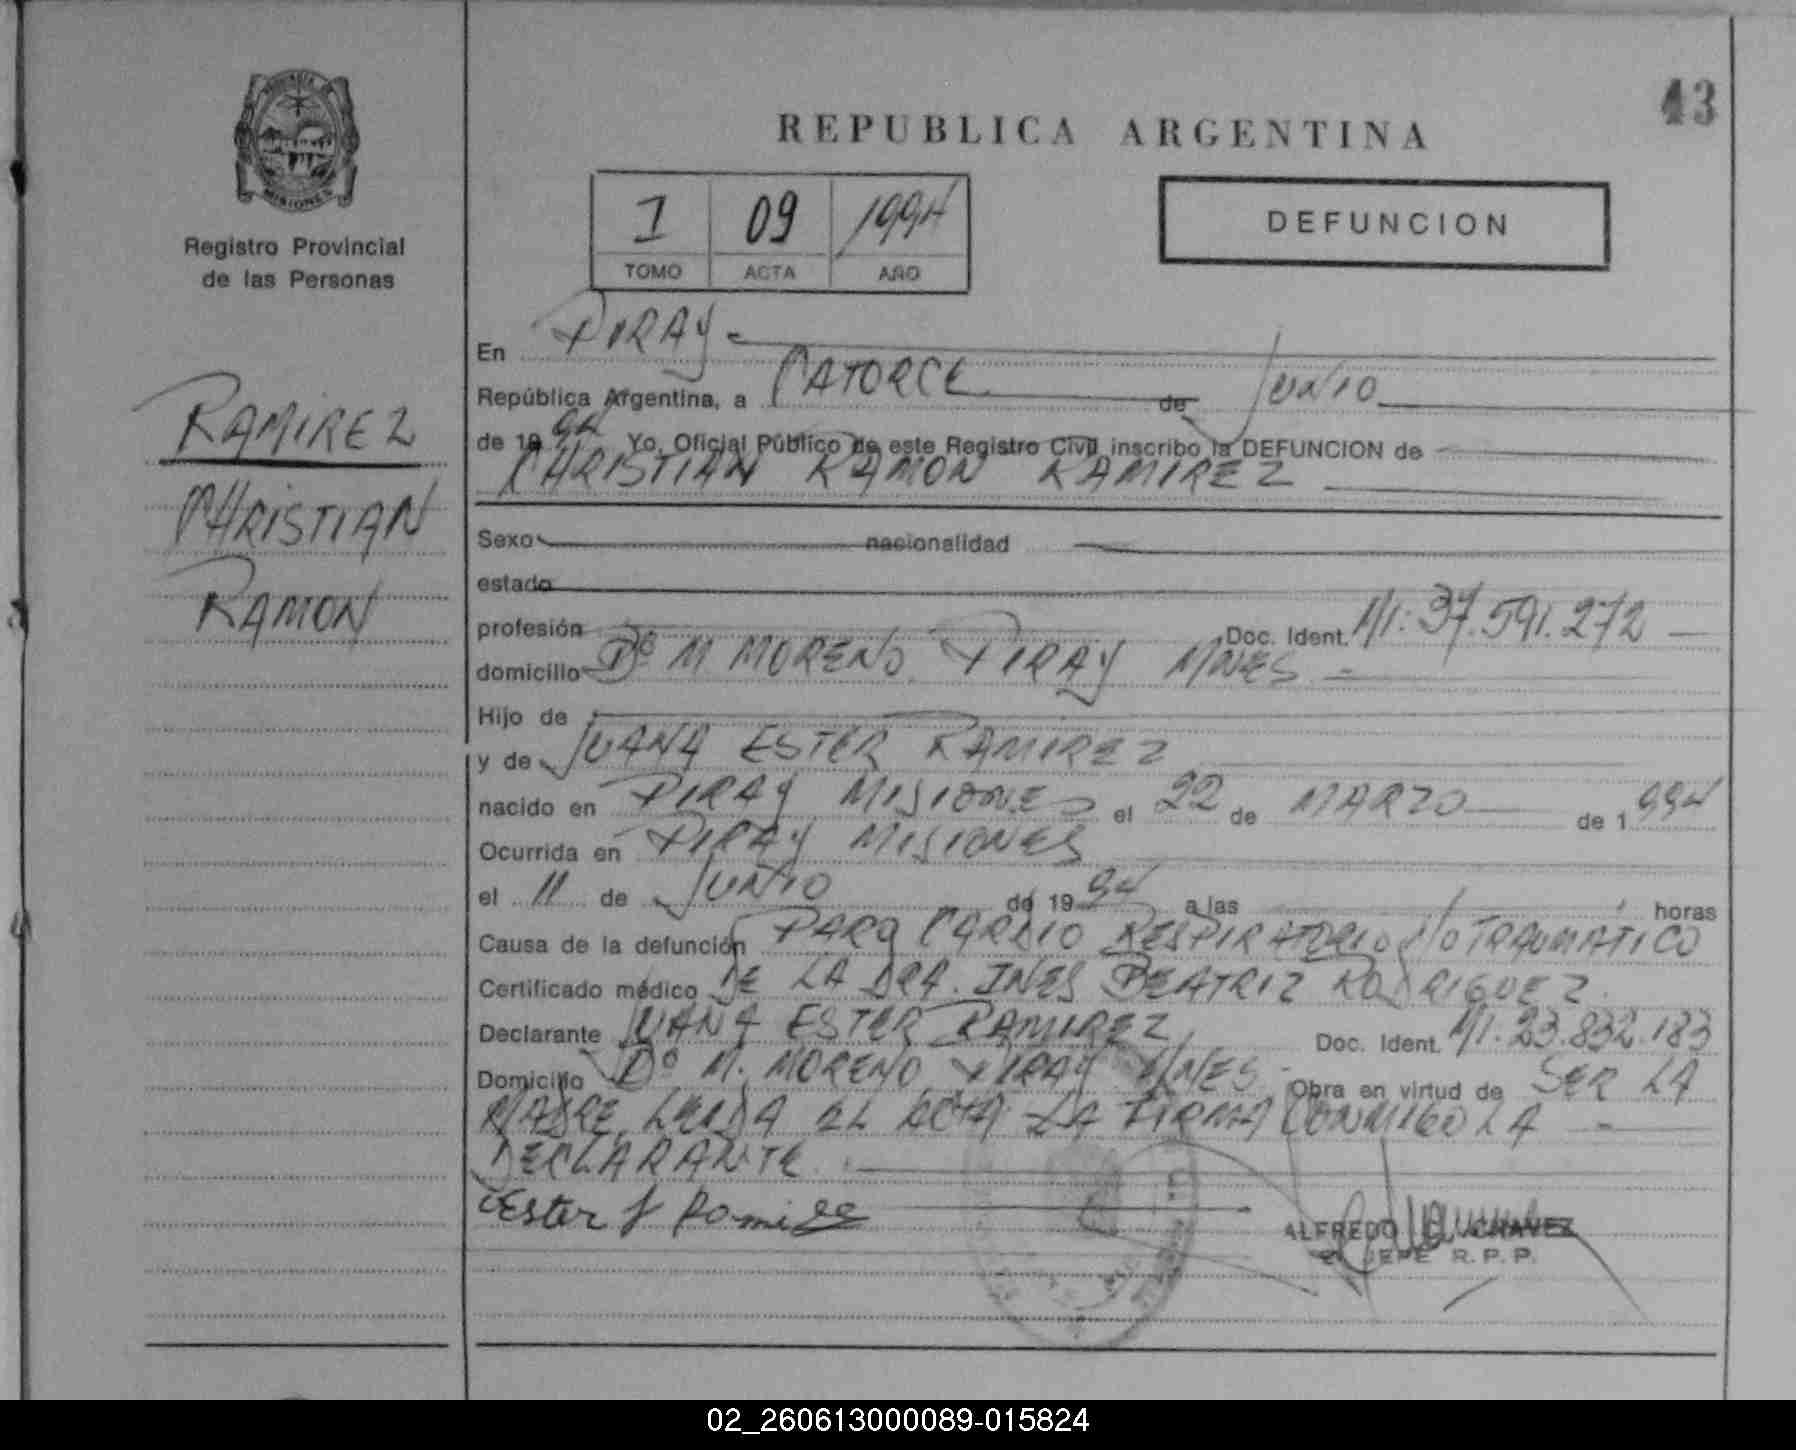 43
REPUBLICA ARGENTINA
MISIONES
Registro Provincial
de las Personas
I 09 1994
TOMO ACTA AÑO
DEFUNCION
RAMIREZ
CHRISTIAN
RAMON
En PIRAY
República Argentina, a CATORCE de JUNIO
de 1994 Yo, Oficial Público de este Registro Civil inscribo la DEFUNCION de
CHRISTIAN RAMON RAMIREZ
Sexo nacionalidad
estado
profesión Doc. Ident. MI: 37.591.272
domicilio Bº M MORENO. PIRAY MNES
Hijo de
y de JUANA ESTER RAMIREZ
nacido en PIRAY MISIONES el 22 de MARZO de 1994
Ocurrida en PIRAY MISIONES
el 11 de JUNIO de 1994 a las horas
Causa de la defunción PARO CARDIO RESPIRATORIO NO TRAUMATICO
Certificado médico DE LA DRA. INES BEATRIZ RODRIGUEZ.
Declarante JUANA ESTER RAMIREZ Doc. Ident. MI. 23.832.183
Domicilio Bº M. MORENO PIRAY MNES Obra en virtud de SER LA
MADRE LEIDA EL ACTA LA FIRMA CONMIGO LA
DECLARANTE
Ester J Ramire
ALFREDO CHAVEZ
JEFE R.P.P.
02_260613000089-015824